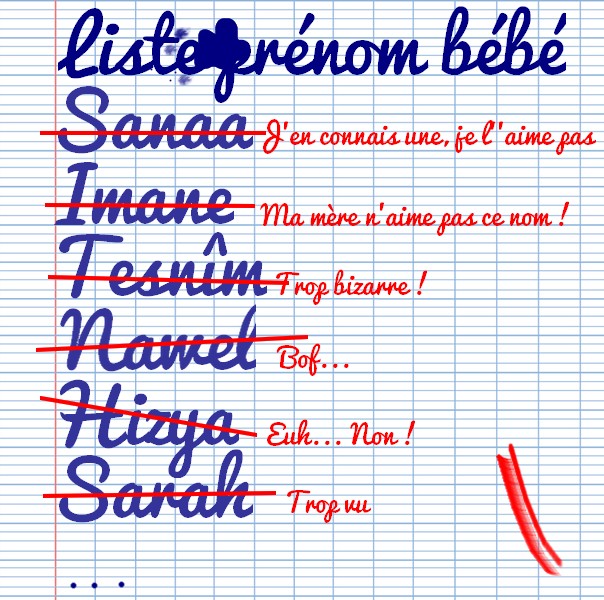 Liste prénom bébé
Sanaa J'en connais une, je l'aime pas
Imane Ma mère n'aime pas ce nom !
Tesnîm Trop bizarre !
Nawel Bof...
Hizya Euh... Non !
Sarah Trop vu
...